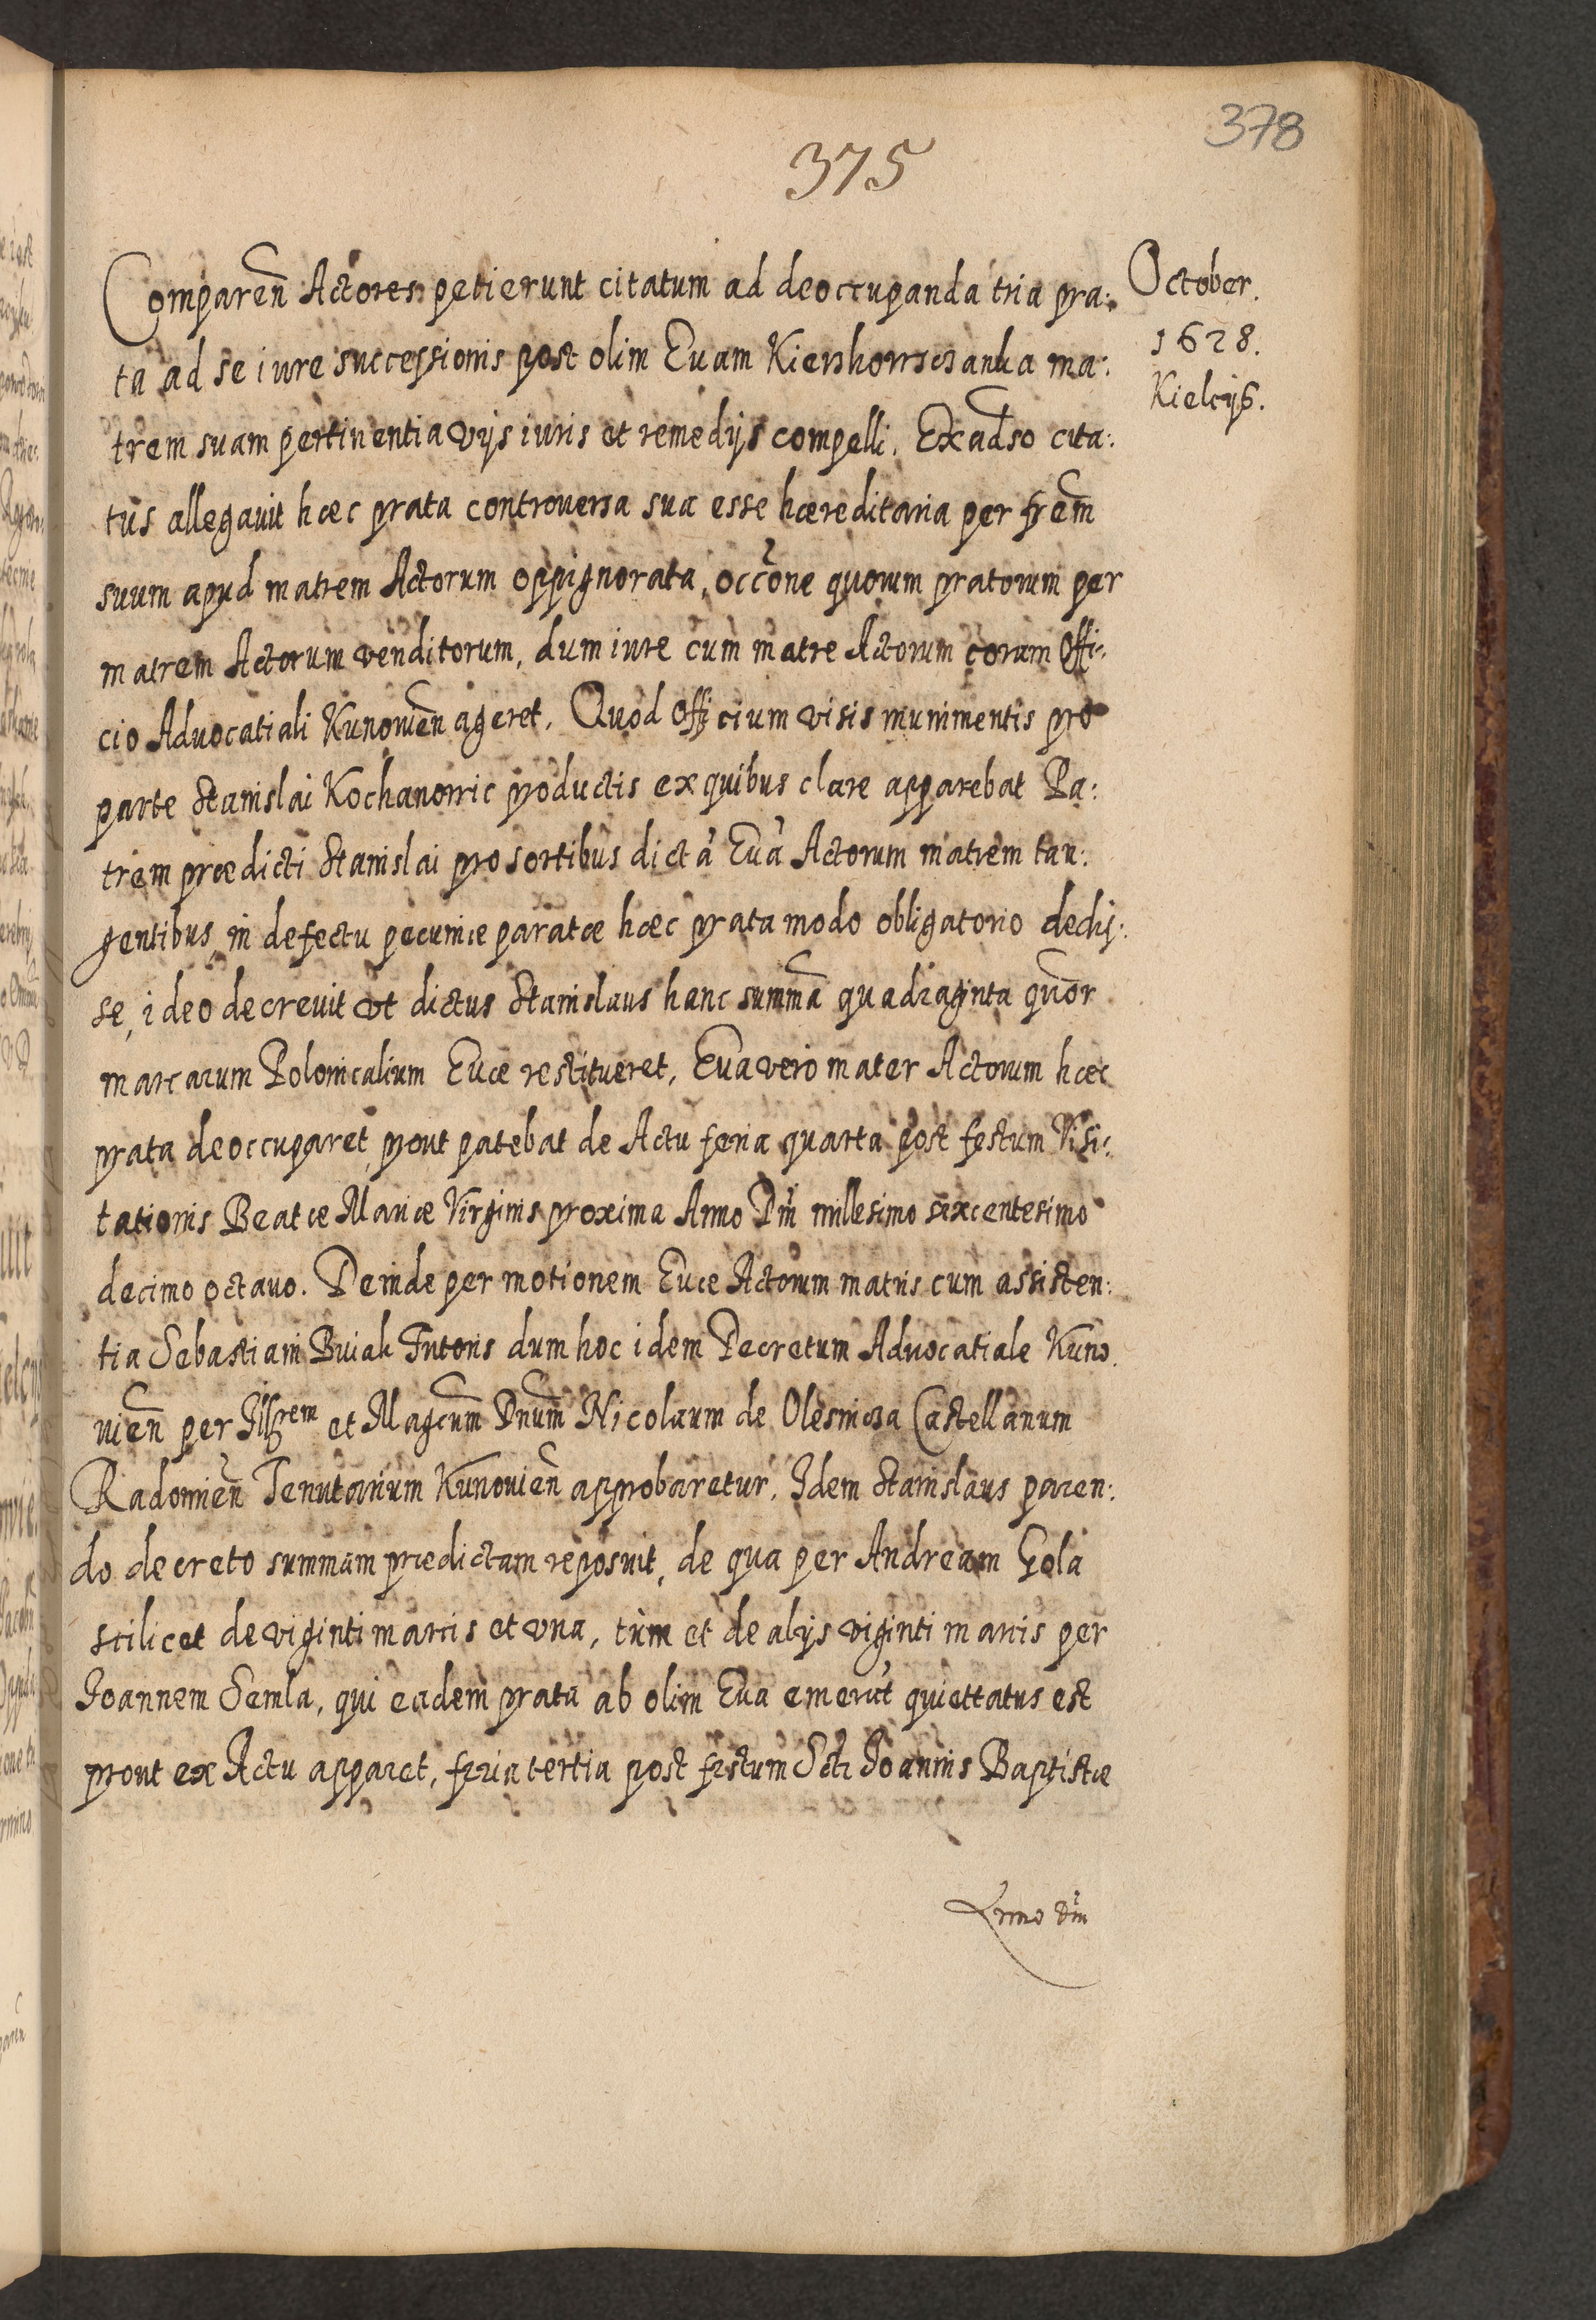 378
375
October.
1628.
Kielcijs.
Comparen̄ Actores petierunt citatum ad deoccupanda tria pra:
ta ad se iure successionis post olim Euam ma:
trem suam pertinentia vijs iuris et remedijs compelli. Exadso cita:
tus allegauit hæc prata controuersa sua esse hæreditaria per frem̄
suum apud matrem Actorum oppignorata, occōne quorum pratorum per
matrem Actorum venditorum, dum iure cum matre Actorum coram Offi:
cio Aduocatiali Kunouien̄ ageret. Quod Officium visis munimentis pro
parte Stanislai Kochanowic productis ex quibus clare apparebat Pa:
trem prædicti Stanislai pro sortibus dictā Euā Actorum matrem tan:
gentibus, in defectu pecuniæ paratæ hæc prata modo obligatorio dedis:
se, ideo decreuit vt dictus Stanislaus hanc summā quadraginta quor̄
marcarum Polonicalium Euæ restitueret, Eua vero mater Actorum hæc
prata deoccuparet, prout patebat de Actu feria quarta post festum Visi:
tationis Beatæ Mariæ Virginis proxima Anno Dni millesimo sexcentesimo
decimo octauo. Deinde per motionem Euæ Actorum matris cum assisten:
tia Sebastiani Buiak Tutoris dum hoc idem Decretum Aduocatiale Kuno
uien̄ per Illrem et Magcum̄ Dnum̄ Nicolaum de Olesnicza Castellanum
Radomien̄ Tenutarium Kunouien̄ approbaretur. Idem Stanislaus paren:
do decreto summam prædictam reposuit, de qua per Andream Gola
scilicet de viginti marcis et vna, tum et de alijs viginti marcis per
Ioannem Semla, qui eadem prata ab olim Eua emerat quiettatus est
prout ex Actu apparet, feria tertia post festum Scti Joannis Baptistæ
Anno Dni